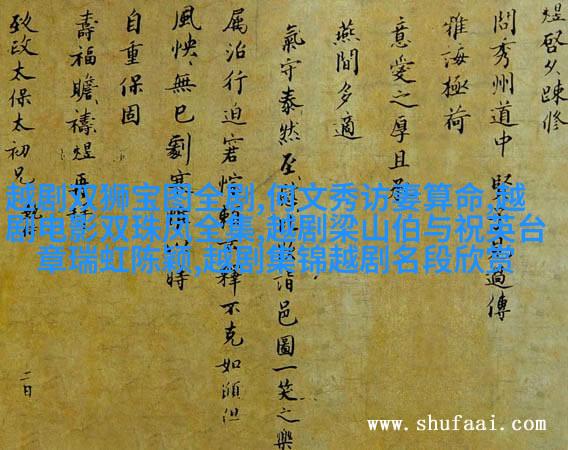 煜啓久踈修
問秀州道中 過傳
雅海極荷
意愛之厚且
燕閒多適
氣守泰然至 詣邑圖一笑之樂
属治行迫窘 不克如願但
風怏怏無已劇寒 時
自重保固
壽福瞻禱煜再拜
致政太保太初兄
二日
越剧双狮宝图全剧,何文秀访妻算命,越
剧电影双珠凤全集,越剧梁山伯与祝英台
章瑞虹陈颖,越剧集锦越剧名段欣赏
www.shufaai.com